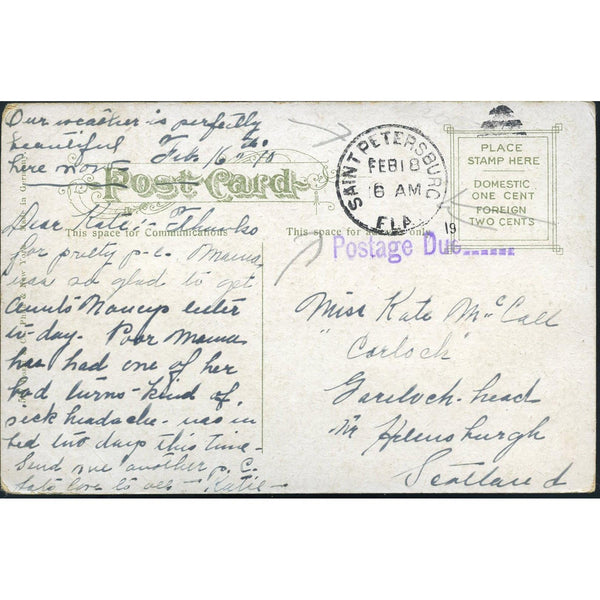 Our weather is perfectly
beautiful Feb 16th '10
here now
Post Card
SAINT PETERSBURG
FEB 18
6 AM
FLA.
19
PLACE
STAMP HERE
DOMESTIC
ONE CENT
FOREIGN
TWO CENTS
This space for Communications
This space for address only
Postage Due......
Dear Kate:-
for pretty p-c. Mama
was so glad to get
Aunt Nancy's letter
to-day. Poor Mama
has had one of her
bad turns - kind of
sick headache - was in
bed two days this time -
Send me another p.c.
love to all - Katie -
Miss Kate McCall
"Carloch"
Gareloch-head
Nr Helensburgh
Scotland